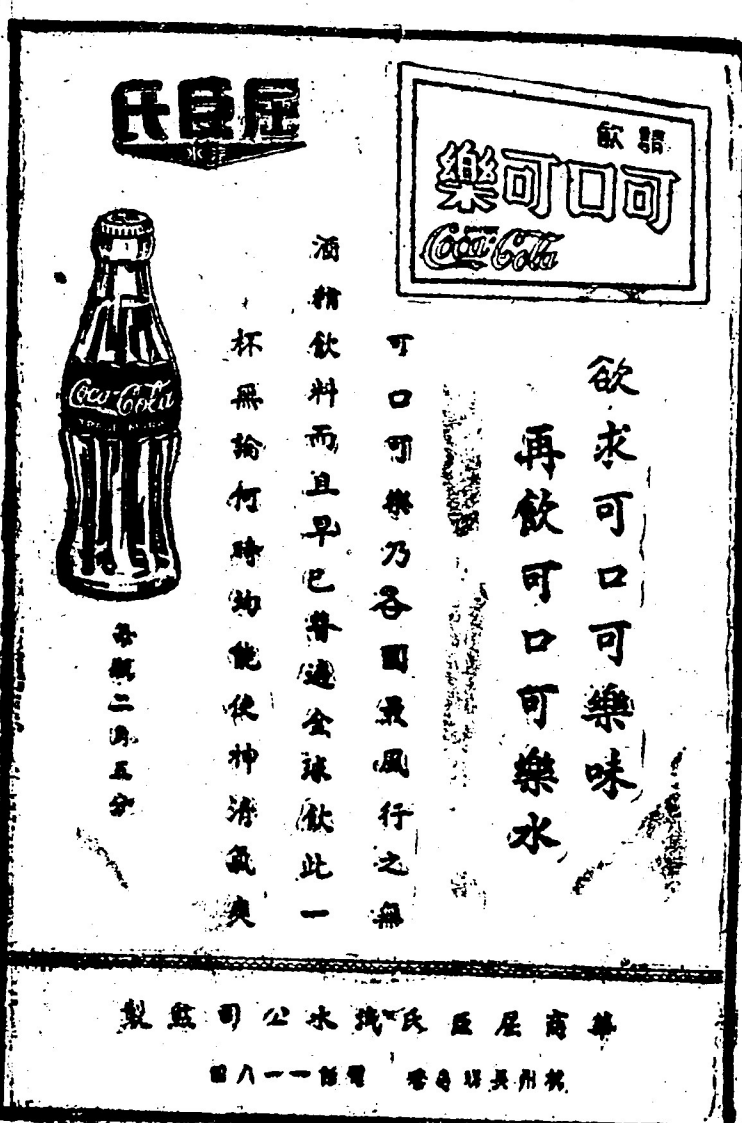 屈臣氏
汽水
請飲
可口可樂
Coca-Cola
欲求可口可樂味
再飲可口可樂水
可口可樂乃各國最風行之無
酒精飲料而且早已普遍全球飲此一
杯無論何時均能使神清氣爽
Coca-Cola
TRADE MARK
每瓶二角五分
華商屈臣氏汽水公司監製
電話一一八四